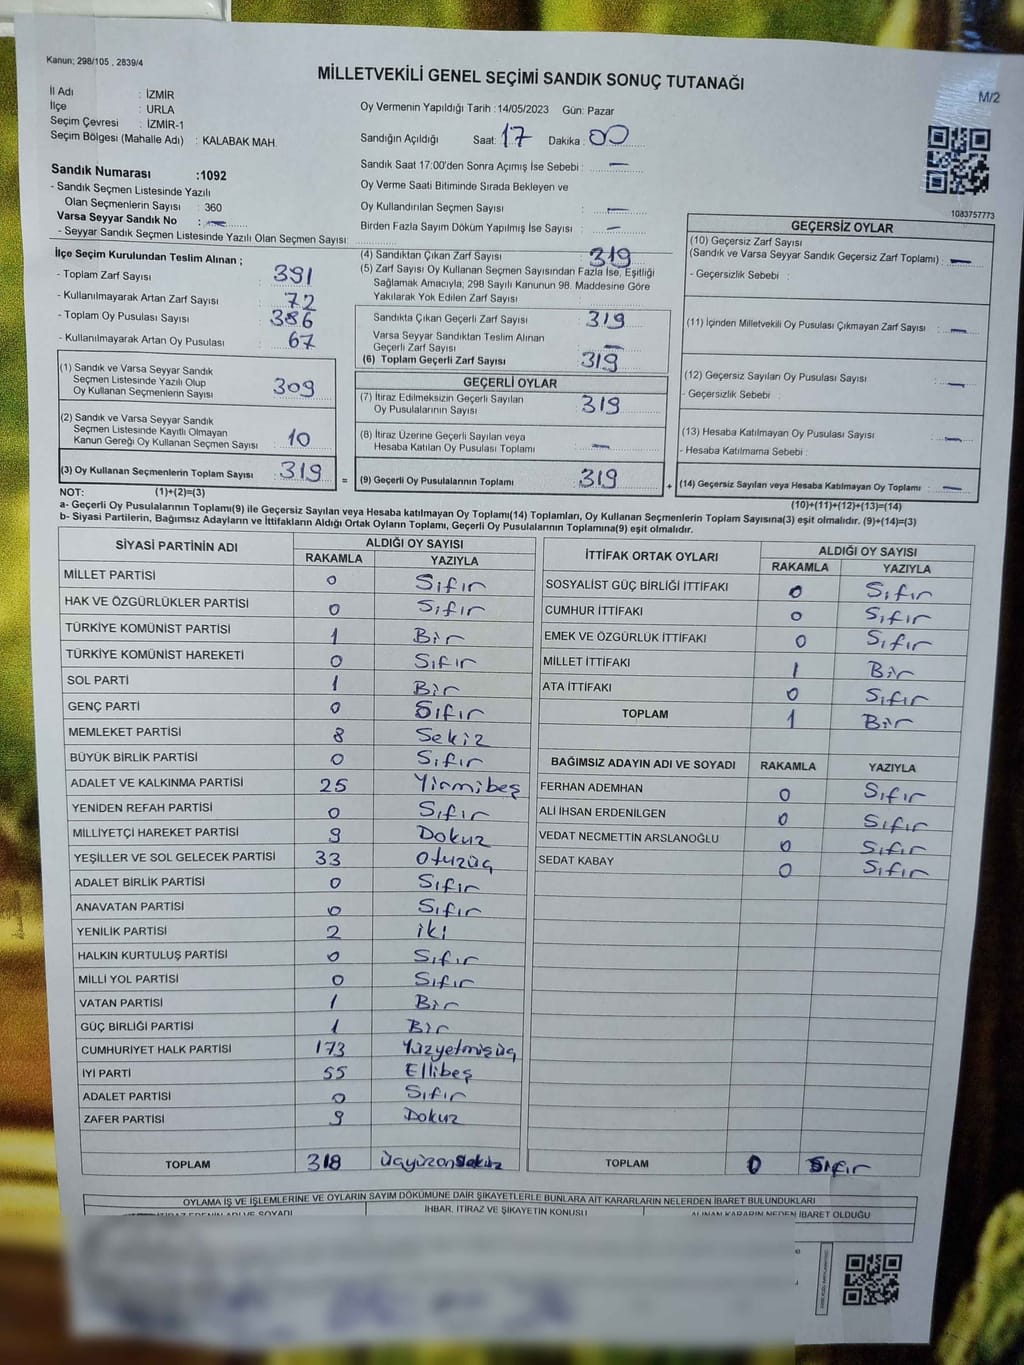 Kanun; 298/105 , 2839/4
MİLLETVEKİLİ GENEL SEÇİMİ SANDIK SONUÇ TUTANAĞI
M/2
İl Adı : İZMİR
İlçe : URLA
Seçim Çevresi : İZMİR-1
Seçim Bölgesi (Mahalle Adı) : KALABAK MAH.
Oy Vermenin Yapıldığı Tarih :14/05/2023 Gün: Pazar
Sandığın Açıldığı Saat: 17 Dakika : 00
Sandık Saat 17:00'den Sonra Açımış İse Sebebi : —
Oy Verme Saati Bitiminde Sırada Bekleyen ve
Oy Kullandırılan Seçmen Sayısı : —
Birden Fazla Sayım Döküm Yapılmış İse Sayısı : —
1083757773
Sandık Numarası :1092
- Sandık Seçmen Listesinde Yazılı
Olan Seçmenlerin Sayısı : 360
Varsa Seyyar Sandık No : —
- Seyyar Sandık Seçmen Listesinde Yazılı Olan Seçmen Sayısı:
İlçe Seçim Kurulundan Teslim Alınan ;
- Toplam Zarf Sayısı : 391
- Kullanılmayarak Artan Zarf Sayısı : 72
- Toplam Oy Pusulası Sayısı : 386
- Kullanılmayarak Artan Oy Pusulası : 67
(1) Sandık ve Varsa Seyyar Sandık
Seçmen Listesinde Yazılı Olup
Oy Kullanan Seçmenlerin Sayısı : 309
(2) Sandık ve Varsa Seyyar Sandık
Seçmen Listesinde Kayıtlı Olmayan
Kanun Gereği Oy Kullanan Seçmen Sayısı : 10
(3) Oy Kullanan Seçmenlerin Toplam Sayısı : 319 =
(4) Sandıktan Çıkan Zarf Sayısı : 319
(5) Zarf Sayısı Oy Kullanan Seçmen Sayısından Fazla İse, Eşitliği
Sağlamak Amacıyla; 298 Sayılı Kanunun 98. Maddesine Göre
Yakılarak Yok Edilen Zarf Sayısı :
Sandıkta Çıkan Geçerli Zarf Sayısı : 319
Varsa Seyyar Sandıktan Teslim Alınan
Geçerli Zarf Sayısı : —
(6) Toplam Geçerli Zarf Sayısı : 319
GEÇERLİ OYLAR
(7) İtiraz Edilmeksizin Geçerli Sayılan
Oy Pusulalarının Sayısı : 319
(8) İtiraz Üzerine Geçerli Sayılan veya
Hesaba Katılan Oy Pusulası Toplamı : —
(9) Geçerli Oy Pusulalarının Toplamı : 319 +
GEÇERSİZ OYLAR
(10) Geçersiz Zarf Sayısı
(Sandık ve Varsa Seyyar Sandık Geçersiz Zarf Toplamı) : —
- Geçersizlik Sebebi :
(11) İçinden Milletvekili Oy Pusulası Çıkmayan Zarf Sayısı : —
(12) Geçersiz Sayılan Oy Pusulası Sayısı : —
- Geçersizlik Sebebi :
(13) Hesaba Katılmayan Oy Pusulası Sayısı : —
- Hesaba Katılmama Sebebi :
(14) Geçersiz Sayılan veya Hesaba Katılmayan Oy Toplamı : —
NOT: (1)+(2)=(3)
(10)+(11)+(12)+(13)=(14)
a- Geçerli Oy Pusulalarının Toplamı(9) ile Geçersiz Sayılan veya Hesaba katılmayan Oy Toplamı(14) Toplamları, Oy Kullanan Seçmenlerin Toplam Sayısına(3) eşit olmalıdır. (9)+(14)=(3)
b- Siyasi Partilerin, Bağımsız Adayların ve İttifakların Aldığı Ortak Oyların Toplamı, Geçerli Oy Pusulalarının Toplamına(9) eşit olmalıdır.
SİYASİ PARTİNİN ADI ALDIĞI OY SAYISI
RAKAMLA YAZIYLA
MİLLET PARTİSİ 0 Sıfır
HAK VE ÖZGÜRLÜKLER PARTİSİ 0 Sıfır
TÜRKİYE KOMÜNİST PARTİSİ 1 Bir
TÜRKİYE KOMÜNİST HAREKETİ 0 Sıfır
SOL PARTİ 1 Bir
GENÇ PARTİ 0 Sıfır
MEMLEKET PARTİSİ 8 Sekiz
BÜYÜK BİRLİK PARTİSİ 0 Sıfır
ADALET VE KALKINMA PARTİSİ 25 Yirmibeş
YENİDEN REFAH PARTİSİ 0 Sıfır
MİLLİYETÇİ HAREKET PARTİSİ 9 Dokuz
YEŞİLLER VE SOL GELECEK PARTİSİ 33 Otuzüç
ADALET BİRLİK PARTİSİ 0 Sıfır
ANAVATAN PARTİSİ 0 Sıfır
YENİLİK PARTİSİ 2 iki
HALKIN KURTULUŞ PARTİSİ 0 Sıfır
MİLLİ YOL PARTİSİ 0 Sıfır
VATAN PARTİSİ 1 Bir
GÜÇ BİRLİĞİ PARTİSİ 1 Bir
CUMHURİYET HALK PARTİSİ 173 Yüzyetmişüç
İYİ PARTİ 55 Ellibeş
ADALET PARTİSİ 0 Sıfır
ZAFER PARTİSİ 9 Dokuz
TOPLAM 318 üçyüzonsekiz
İTTİFAK ORTAK OYLARI ALDIĞI OY SAYISI
RAKAMLA YAZIYLA
SOSYALİST GÜÇ BİRLİĞİ İTTİFAKI 0 Sıfır
CUMHUR İTTİFAKI 0 Sıfır
EMEK VE ÖZGÜRLÜK İTTİFAKI 0 Sıfır
MİLLET İTTİFAKI 1 Bir
ATA İTTİFAKI 0 Sıfır
TOPLAM 1 Bir
BAĞIMSIZ ADAYIN ADI VE SOYADI RAKAMLA YAZIYLA
FERHAN ADEMHAN 0 Sıfır
ALİ İHSAN ERDENİLGEN 0 Sıfır
VEDAT NECMETTİN ARSLANOĞLU 0 Sıfır
SEDAT KABAY 0 Sıfır
TOPLAM 0 Sıfır
OYLAMA İŞ VE İŞLEMLERİNE VE OYLARIN SAYIM DÖKÜMÜNE DAİR ŞİKAYETLERLE BUNLARA AİT KARARLARIN NELERDEN İBARET BULUNDUKLARI
İTİRAZ EDENİN ADI VE SOYADI İHBAR, İTİRAZ VE ŞİKAYETİN KONUSU ALINAN KARARIN NEDEN İBARET OLDUĞU